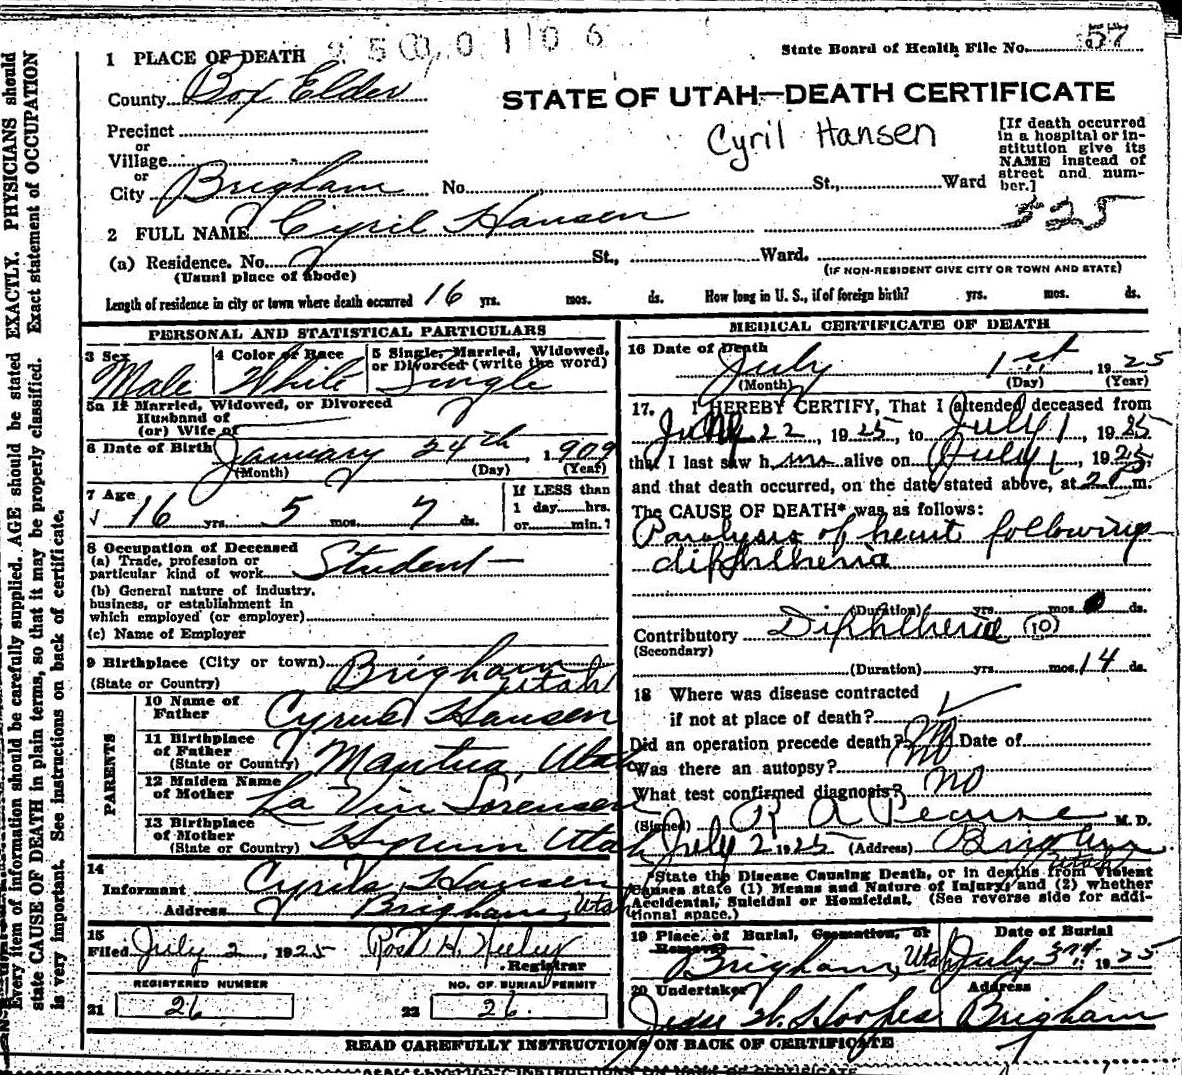 2500106
State Board of Health File No. 57
1 PLACE OF DEATH
County Box Elder
STATE OF UTAH—DEATH CERTIFICATE
Cyril Hansen
[If death occurred
in a hospital or in-
stitution give its
NAME instead of
street and num-
ber.]
Precinct
or
Village
or
City Brigham No. St., Ward
325
2 FULL NAME Cyril Hansen
(a) Residence. No. St., Ward.
(Usual place of abode)
(IF NON-RESIDENT GIVE CITY OR TOWN AND STATE)
Length of residence in city or town where death occurred 16 yrs. mos. ds. How long in U. S., if of foreign birth? yrs. mos. ds.
PERSONAL AND STATISTICAL PARTICULARS
3 Sex
Male
4 Color or Race
White
5 Single, Married, Widowed,
or Divorced (write the word)
Single
5a If Married, Widowed, or Divorced
Husband of
(or) Wife of
6 Date of Birth January 24th, 1909
(Month) (Day) (Year)
7 Age
16 yrs. 5 mos. 7 ds.
If LESS than
1 day hrs.
or min.?
8 Occupation of Deceased
(a) Trade, profession or
particular kind of work Student
(b) General nature of industry,
business, or establishment in
which employed (or employer)
(c) Name of Employer
9 Birthplace (City or town) Brigham
(State or Country) Utah
PARENTS
10 Name of
Father Cyrus Hansen
11 Birthplace
of Father
(State or Country) Mantua, Utah
12 Maiden Name
of Mother La Vin Sorensen
13 Birthplace
of Mother
(State or Country) Hyrum Utah
14
Informant Cyrus Hansen
Address Brigham, Utah
15
Filed July 2, 1925
Registrar
REGISTERED NUMBER
21 26
NO. OF BURIAL PERMIT
22 26
MEDICAL CERTIFICATE OF DEATH
16 Date of Death
July 1st, 1925
(Month) (Day) (Year)
17. I HEREBY CERTIFY, That I attended deceased from
22, 1925, to July 1, 1925
that I last saw him alive on July 1, 1925,
and that death occurred, on the date stated above, at m.
The CAUSE OF DEATH* was as follows:
Paralysis of heart following
diphtheria
(Duration) yrs. mos. ds.
Contributory Diphtheria (10)
(Secondary)
(Duration) yrs. mos. 14 ds.
18 Where was disease contracted
if not at place of death?
Did an operation precede death? No Date of
Was there an autopsy? No
What test confirmed diagnosis? no
(Signed) R A Pearse M. D.
July 2 1925 (Address) Brigham
Utah
*State the Disease Causing Death, or in deaths from Violent
Causes state (1) Means and Nature of Injury; and (2) whether
Accidental, Suicidal or Homicidal. (See reverse side for addi-
tional space.)
19 Place of Burial, Cremation, or
Removal
Brigham, Utah
Date of Burial
July 3rd 1925
20 Undertaker
Jesse W. Hoopes
Address
Brigham
READ CAREFULLY INSTRUCTIONS ON BACK OF CERTIFICATE
Every item of information should be carefully supplied. AGE should be stated EXACTLY. PHYSICIANS should
state CAUSE OF DEATH in plain terms, so that it may be properly classified. Exact statement of OCCUPATION
is very important. See instructions on back of certificate.